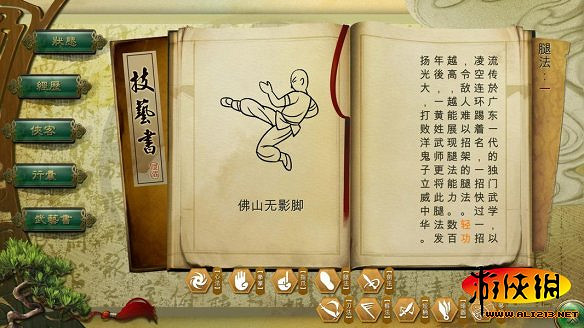 狀態
經歷
俠客
行囊
武藝書
技藝書
佛山无影脚
腿法：一
流传於广东一代的独门武学，以
凌空连环踢着名，一招快过一招
，令敌人难以招架的腿法。轻功
越高，越能展现腿法能力。数百
年後，一黄姓武师更将此腿法发
扬光大，打败洋鬼子立威中华。
游侠網
WWW.ALI213.NET